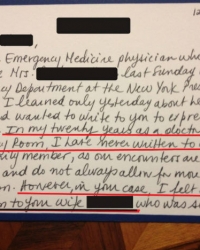 12
Emergency Medicine physician who
Mrs. last Sunday
Department at the New York Pres
I learned only yesterday about he
d wanted to write to you to expre
In my twenty years as a doctor
y Room, I have never written to
ily member, as our encounters are
and do not always allow for mou
However, in your case, I felt
to your wife who was s